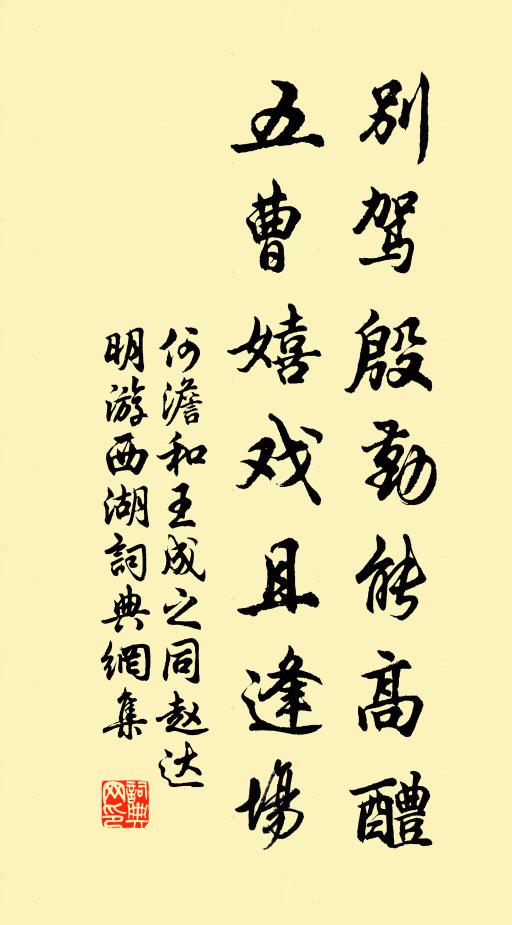 别驾殷勤能高醴
五曹嬉戏且逢場
何澹和王成之同赵达
明游西湖詞典網集
詞典网印